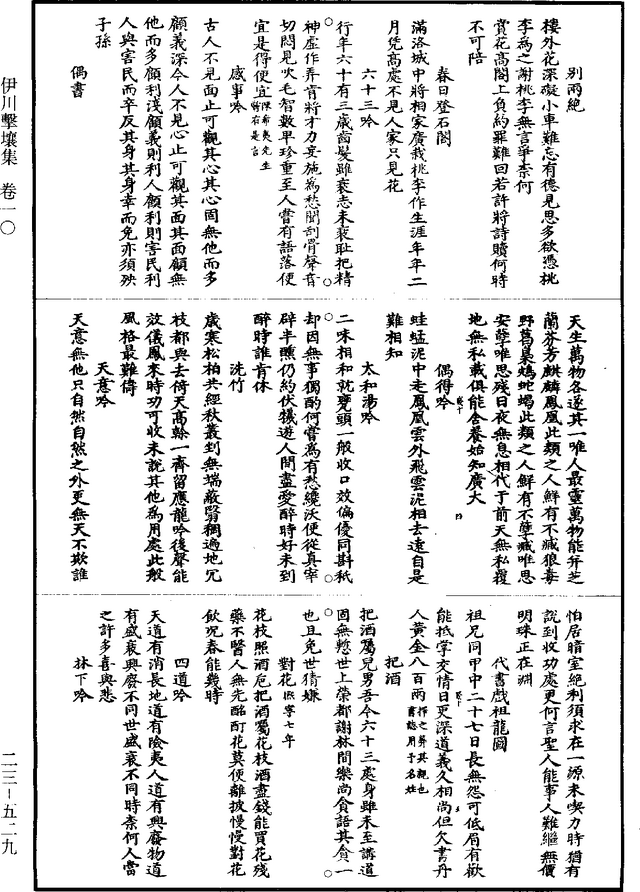 別兩絕
樓外花深礙小車難忘有德見思多欲憑桃
李為之謝桃李無言爭奈何
賞花高閣上負約罪難回若許將詩贖何時
不可陪
春日登石閣
滿洛城中將相家廣栽桃李作生涯年年二
月凭高處不見人家只見花
六十三吟
行年六十有三歲齒髮雖衰志未衰恥把精
神虛作弄肯將才力妄施為愁聞刮骨聲音
切悶見吹毛智數卑珍重至人嘗有語落便
宜是得便宜陳希夷先生嘗有是言
感事吟
古人不見面止可觀其心其心固無他而多
顧義深今人不見心止可觀其面其面顧無
他而多顧利淺顧義則利人顧利則害民利
人與害民而卒反其身其身幸而免亦須殃
子孫
偶書
天生萬物各遂其一唯人最靈萬物能并芝
蘭芬芳麒麟鳳凰此類之人鮮有不臧狼毒
野葛梟鴆蛇蝎此類之人鮮有不孽臧唯思
安孽唯思殘日夜無息相代于前天無私覆
地無私載俱能含養始知廣大
偶得吟
蛙蜢泥中走鳳凰雲外飛雲泥相去遠自是
難相知
太和湯吟
二味相和就甕頭一般收口效偏優同斟秖
却因無事獨酌何嘗為有愁纔沃便從真宰
辟半醺仍約伏犧遊人間盡愛醉時好未到
醉時誰肯休
洗竹
歲寒松柏共經秋叢剗無端蔽翳稠遍地冗
枝都與去倚天高榦一齊留應龍吟後聲能
效儀鳳來時功可收未說其他為用處此般
風格最難儔
天意吟
天意無他只自然自然之外更無天不欺誰
怕居暗室絕利須求在一源未喫力時猶有
說到收功處更何言聖人能事人難繼無價
明珠正在淵
代書戲祖龍圖
祖兄同甲申二十七日長無怨可低眉有歡
能抵掌交情日更深道義久相尚但欠書丹
人黃金八百兩
把酒
把酒屬兒男吾今六十三處身雖未至講道
固無慙世上榮都謝林間樂尚貪語其貪一
也且免世猜嫌
對花熙寧七年
花枝照酒卮把酒屬花枝酒盡錢能買花殘
藥不醫人無先酩酊花莫便離披慢慢對花
飲況春能幾時
四道吟
天道有消長地道有險夷人道有興廢物道
有盛衰興廢不同世盛衰不同時柰何人當
之許多喜與悲
林下吟
伊川擊壤集 卷一〇
二三－五二九